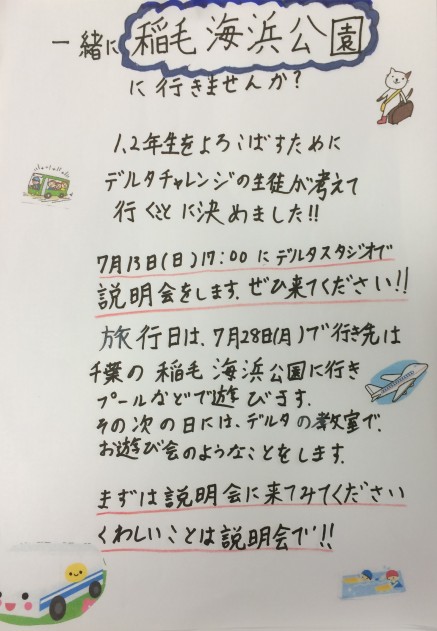 一緒に稲毛海浜公園
に行きませんか?
1、2年生をよろこばすために
デルタチャレンジの生徒が考えて
行くことに決めました!!
7月13日(日)17:00にデルタスタジオで
説明会をします。ぜひ来てください!!
旅行日は、7月28日(月)で行き先は
千葉の稲毛海浜公園に行き
プールなどで遊びます。
その次の日には、デルタの教室で、
お遊び会のようなことをします。
まずは説明会に来てみてください
くわしいことは説明会で!!